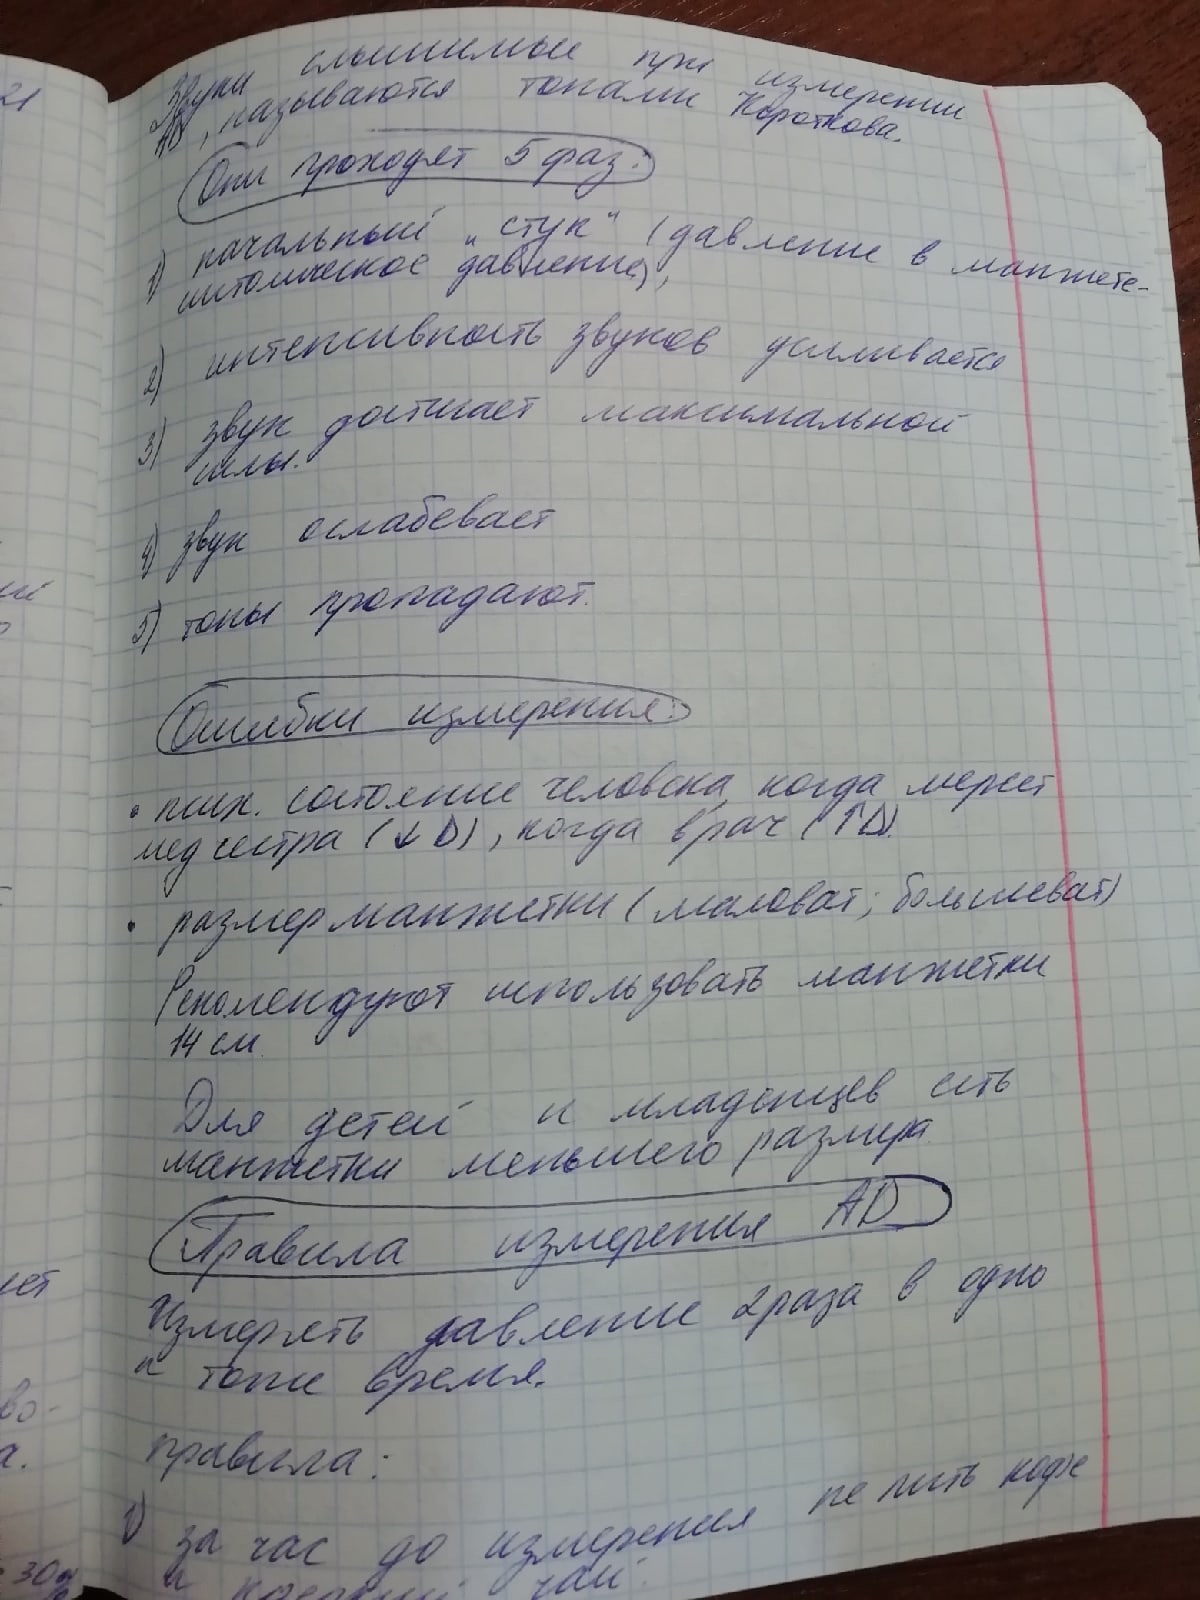 21
Звуки слышимые при измерении
АД, называются тонами Короткова.
Они проходят 5 фаз:
1) начальный „стук“ (давление в манжете-
систолическое давление),
2) интенсивность звуков усиливается
3) звук достигает максимальной
силы.
4) звук ослабевает
5) тоны пропадают.
Ошибки измерения:
• псих. состояние человека, когда меряет
медсестра (↓D), когда врач (↑D).
• размер манжетки (маловат; большеват)
Рекомендуют использовать манжетки
14 см.
Для детей и младенцев есть
манжетки меньшего размера.
Правила измерения АД
Измерять давление 2 раза в одно
и тоже время.
правила:
1) за час до измерения не пить кофе
и крепкий чай.